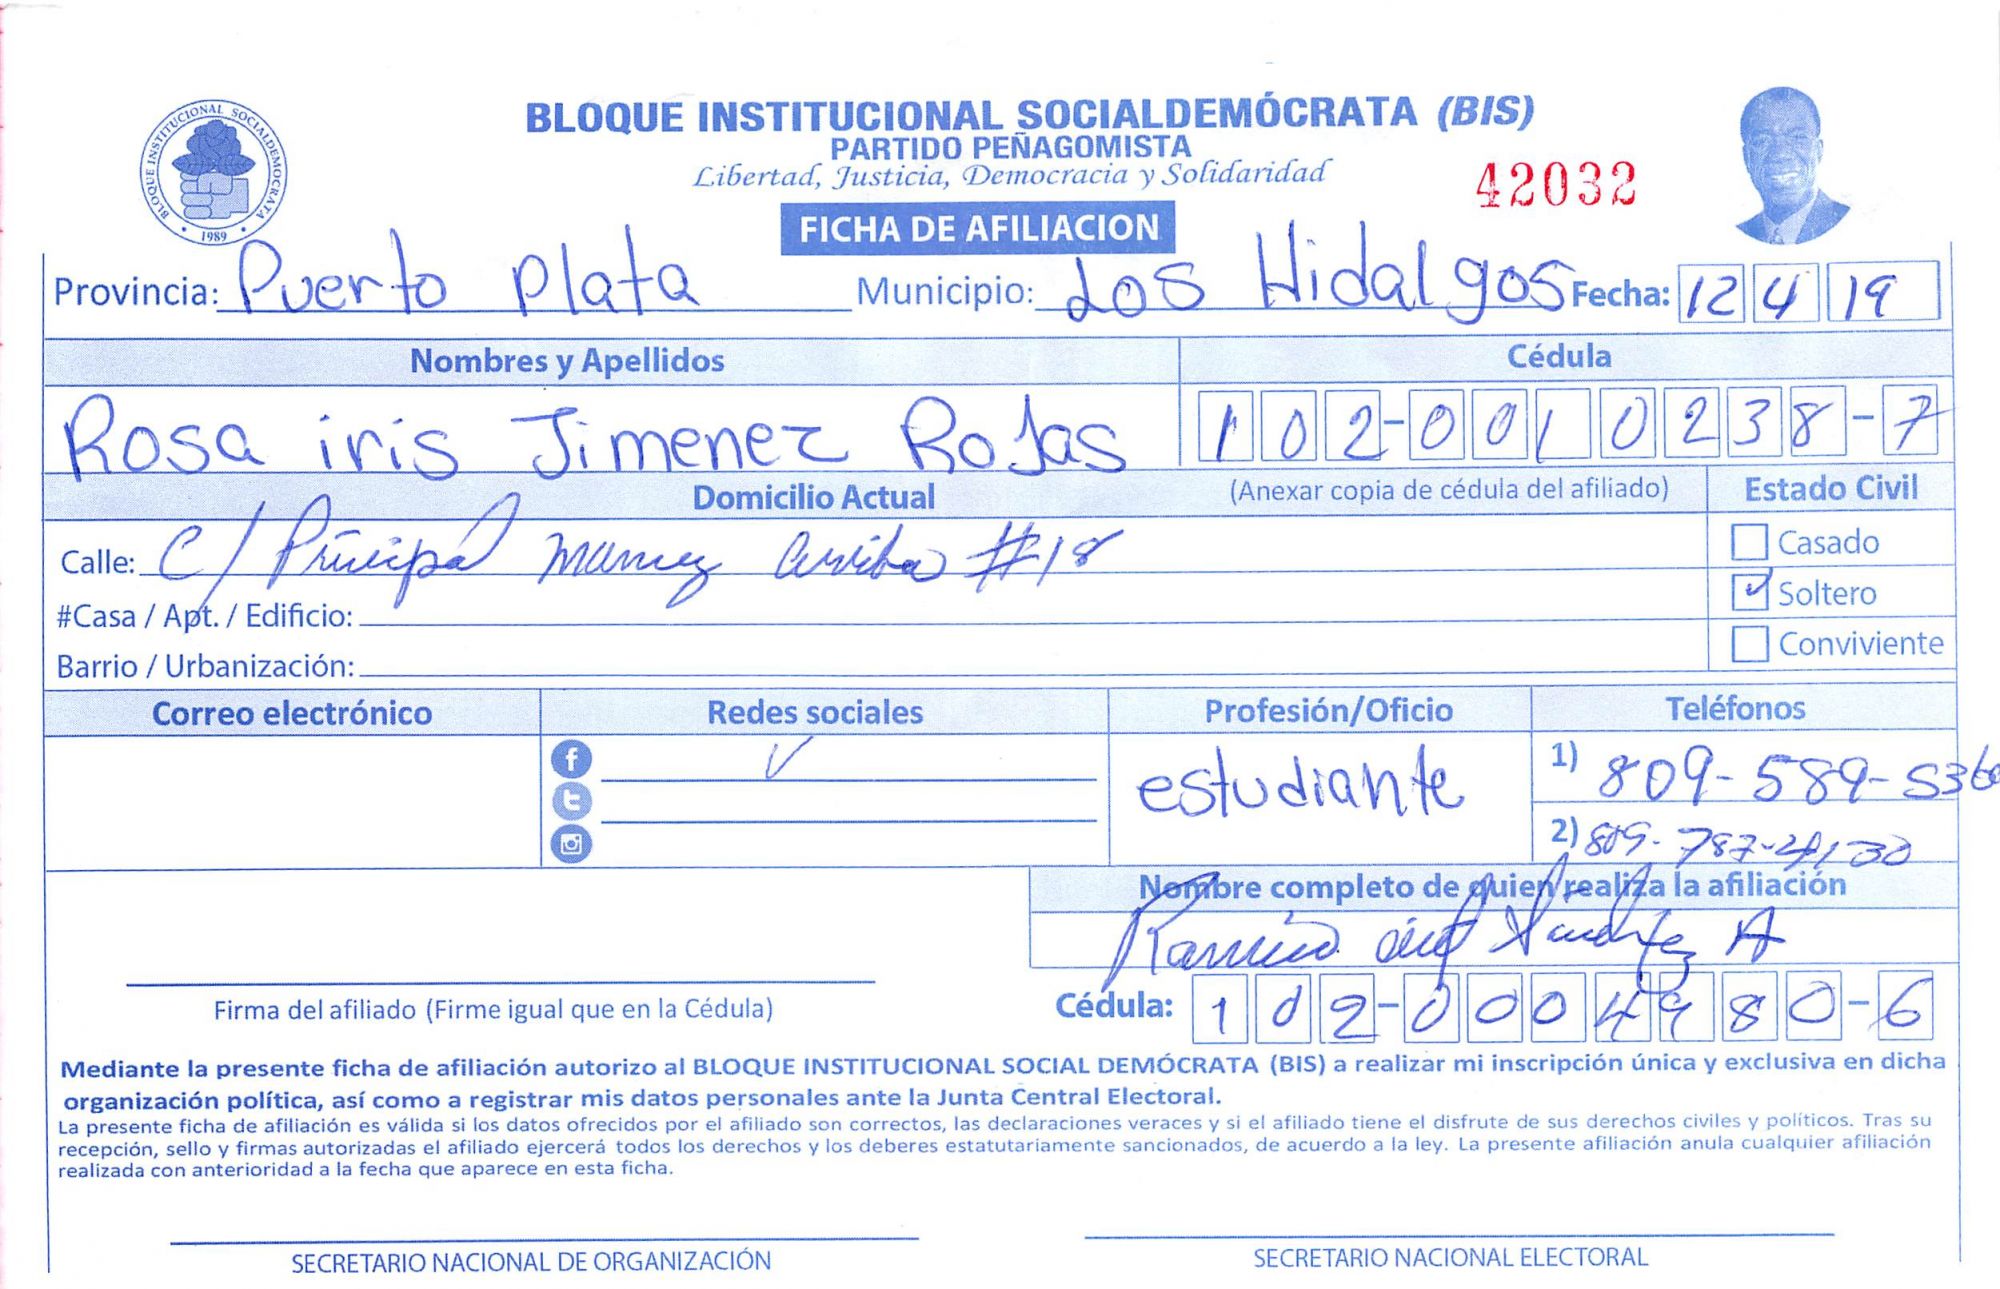 BLOQUE INSTITUCIONAL SOCIALDEMOCRATA
1989
BLOQUE INSTITUCIONAL SOCIALDEMÓCRATA (BIS)
PARTIDO PEÑAGOMISTA
Libertad, Justicia, Democracia y Solidaridad
42032
FICHA DE AFILIACION
Provincia: Puerto Plata Municipio: Los Hidalgos Fecha: 12 4 19
Nombres y Apellidos Cédula
Rosa iris Jimenez Rojas 102-0010238-7
Domicilio Actual (Anexar copia de cédula del afiliado) Estado Civil
Calle: C/ Principal arriba #18 Casado
#Casa / Apt. / Edificio: Soltero
Barrio / Urbanización: Conviviente
Correo electrónico Redes sociales Profesión/Oficio Teléfonos
estudiante 1) 809-589-5360
2) 809-787-
Nombre completo de quien realiza la afiliación
Sanchez A
Firma del afiliado (Firme igual que en la Cédula) Cédula: 102-0004980-6
Mediante la presente ficha de afiliación autorizo al BLOQUE INSTITUCIONAL SOCIAL DEMÓCRATA (BIS) a realizar mi inscripción única y exclusiva en dicha
organización política, así como a registrar mis datos personales ante la Junta Central Electoral.
La presente ficha de afiliación es válida si los datos ofrecidos por el afiliado son correctos, las declaraciones veraces y si el afiliado tiene el disfrute de sus derechos civiles y políticos. Tras su
recepción, sello y firmas autorizadas el afiliado ejercerá todos los derechos y los deberes estatutariamente sancionados, de acuerdo a la ley. La presente afiliación anula cualquier afiliación
realizada con anterioridad a la fecha que aparece en esta ficha.
SECRETARIO NACIONAL DE ORGANIZACIÓN SECRETARIO NACIONAL ELECTORAL